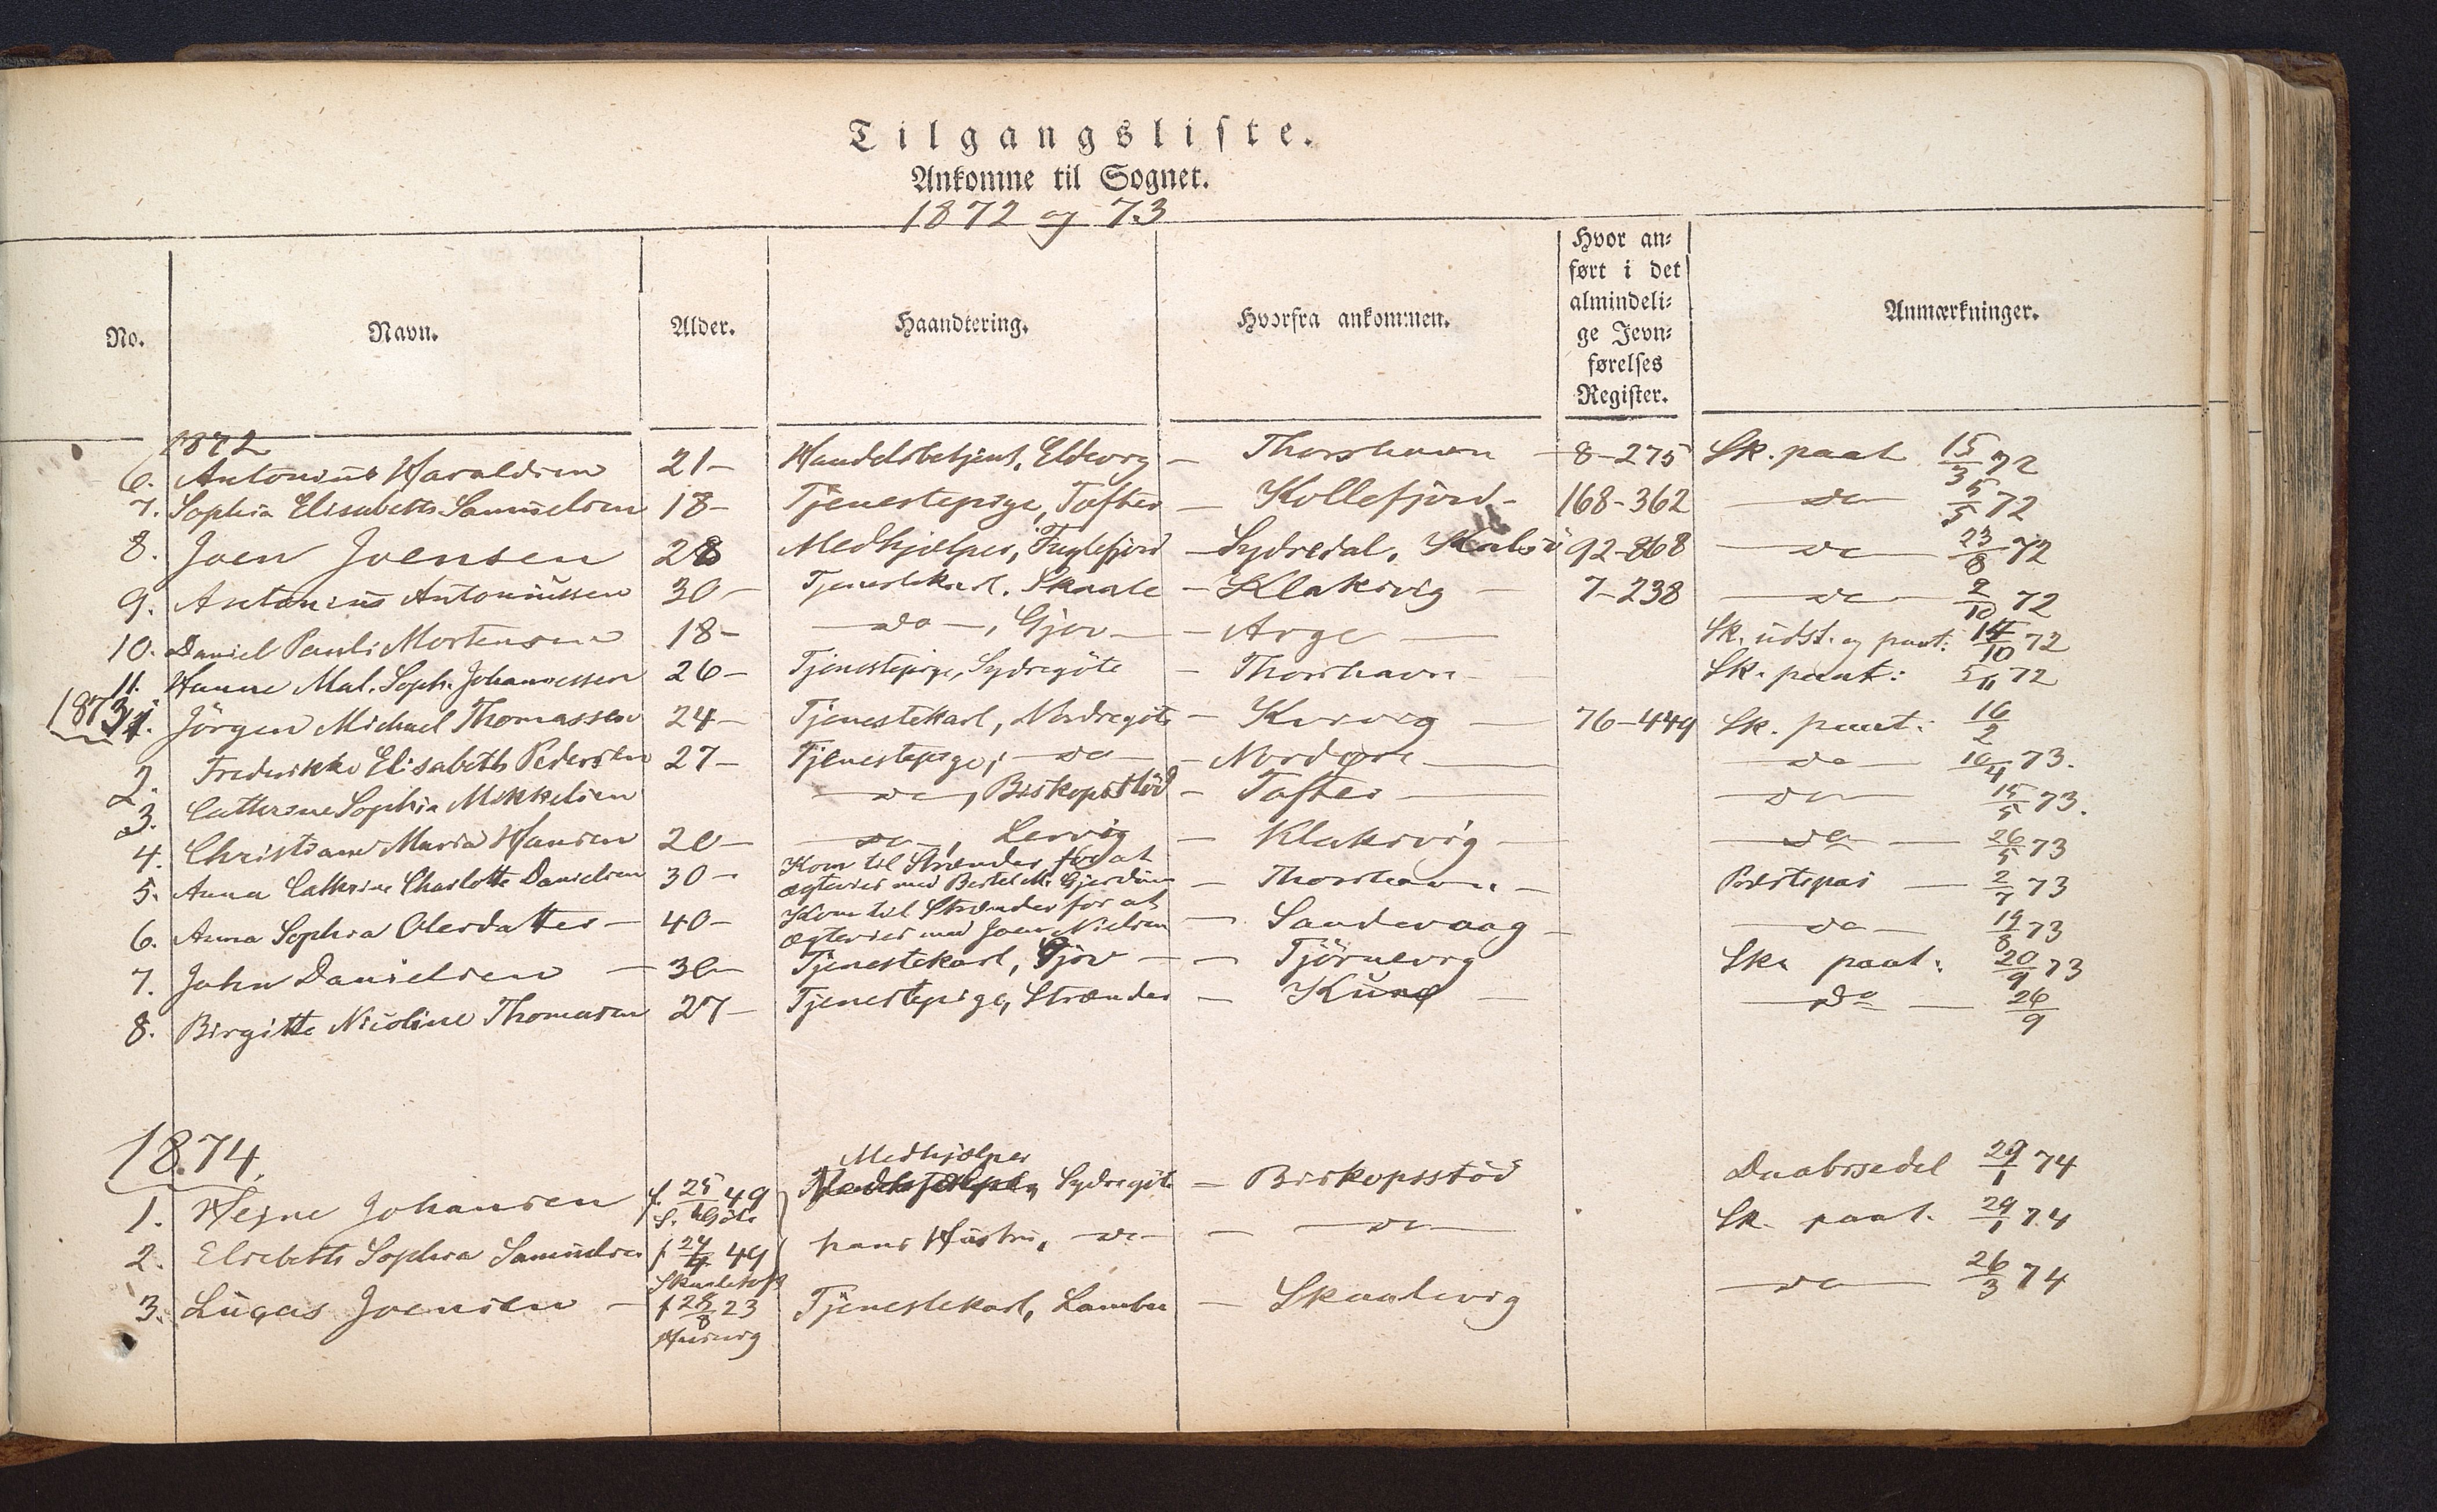 Tilgangsliste.
Ankomne til Sognet.
1872 og 73
No. Navn. Alder. Haandtering. Hvorfra ankommen. Hvor an= ført i det almindeli= ge Jevn= førelses Register. Anmærkninger.
1872
6. Antonius Haraldsen 21 – Handelsbetjent, Eldevig – Thorshavn – 8-275 Sk. paat 15/3 72
7. Sophia Elisabeth Samuelsen 18 – Tjenestepige, Tofter – Kollefjord – 168-362 – do – 5/5 72
8. Joen Joensen 28 Medhjelper, Fuglefjord – Sydredal, 92-868 – do – 23/8 72
9. Antonius Antoniussen 30 – Tjenestekarl, Skaale – Klaksvig – 7-238 – do – 2/10 72
10. Daniel Pauli Mortensen 18 – – do –, Gjov – – Arge – Sk. udst. og paat: 14/10 72
11. Hanne Mal. Soph. Johannessen 26 – Tjenestepige, Sydregöte – Thorshavn – Sk. paat: 5/11 72
1873 1. Jörgen Michael Thomassen 24 – Tjenestekarl, Nordregöte – Kvivig – 76-449 Sk. paat: 16/2
2. Frederikke Elisabeth Pedersen 27 – Tjenestepige, – do – – Nordöre – – do – 10/4 73.
3. Cathrine Sophia Mikkelsen – do –, Biskopsstöd – Tofter – – do – 15/5 73.
4. Christiane Maria Hansen 20 – – do –, Lervig – Klaksvig – – do – 26/5 73
5. Anna Cathrine Charlotte Danielsen 30 – Kom til Strænder for at
ægtevies med Bertel M. Gjerding – Thorshavn – Præstepas – 2/7 73
6. Anna Sophia Olesdatter – 40 – Kom til Strænder for at
ægtevies med Joen Nielsen – Sandevaag – – do – 19/8 73
7. John Danielsen – 30 – Tjenestekarl, Gjov – – Tjörnevig Sk. paat: 20/9 73
8. Birgitte Nicoline Thomasen 27 – Tjenestepige, Strænder – Kunö – – do – 26/9
1874.
Medhjælper
1. Hejne Johansen f. 25/ 49 Sydregöte – Biskopsstöd Daabssedel 29/1 74
S. Göte
2. Elsebeth Sophia Samuelsen f 24/4 49 hans Hustru, – do – – – do – Sk. paat. 29/1 74
Skaaletoft
3. Lugas Joensen – f 28/8 23 Tjenestekarl, Lamba – Skaalevig – do – 26/3 74
Husevig